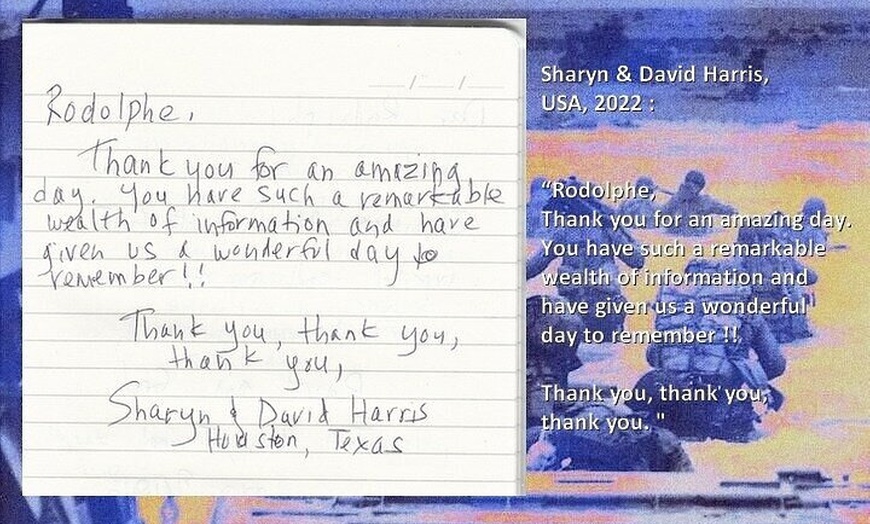 Rodolphe,
Thank you for an amazing
day. You have such a remarkable
wealth of information and have
given us a wonderful day to
remember!!
Thank you, thank you,
thank you,
Sharyn & David Harris
Houston, Texas
Sharyn & David Harris,
USA, 2022 :
“Rodolphe,
Thank you for an amazing day.
You have such a remarkable
wealth of information and
have given us a wonderful
day to remember !!
Thank you, thank you,
thank you. "